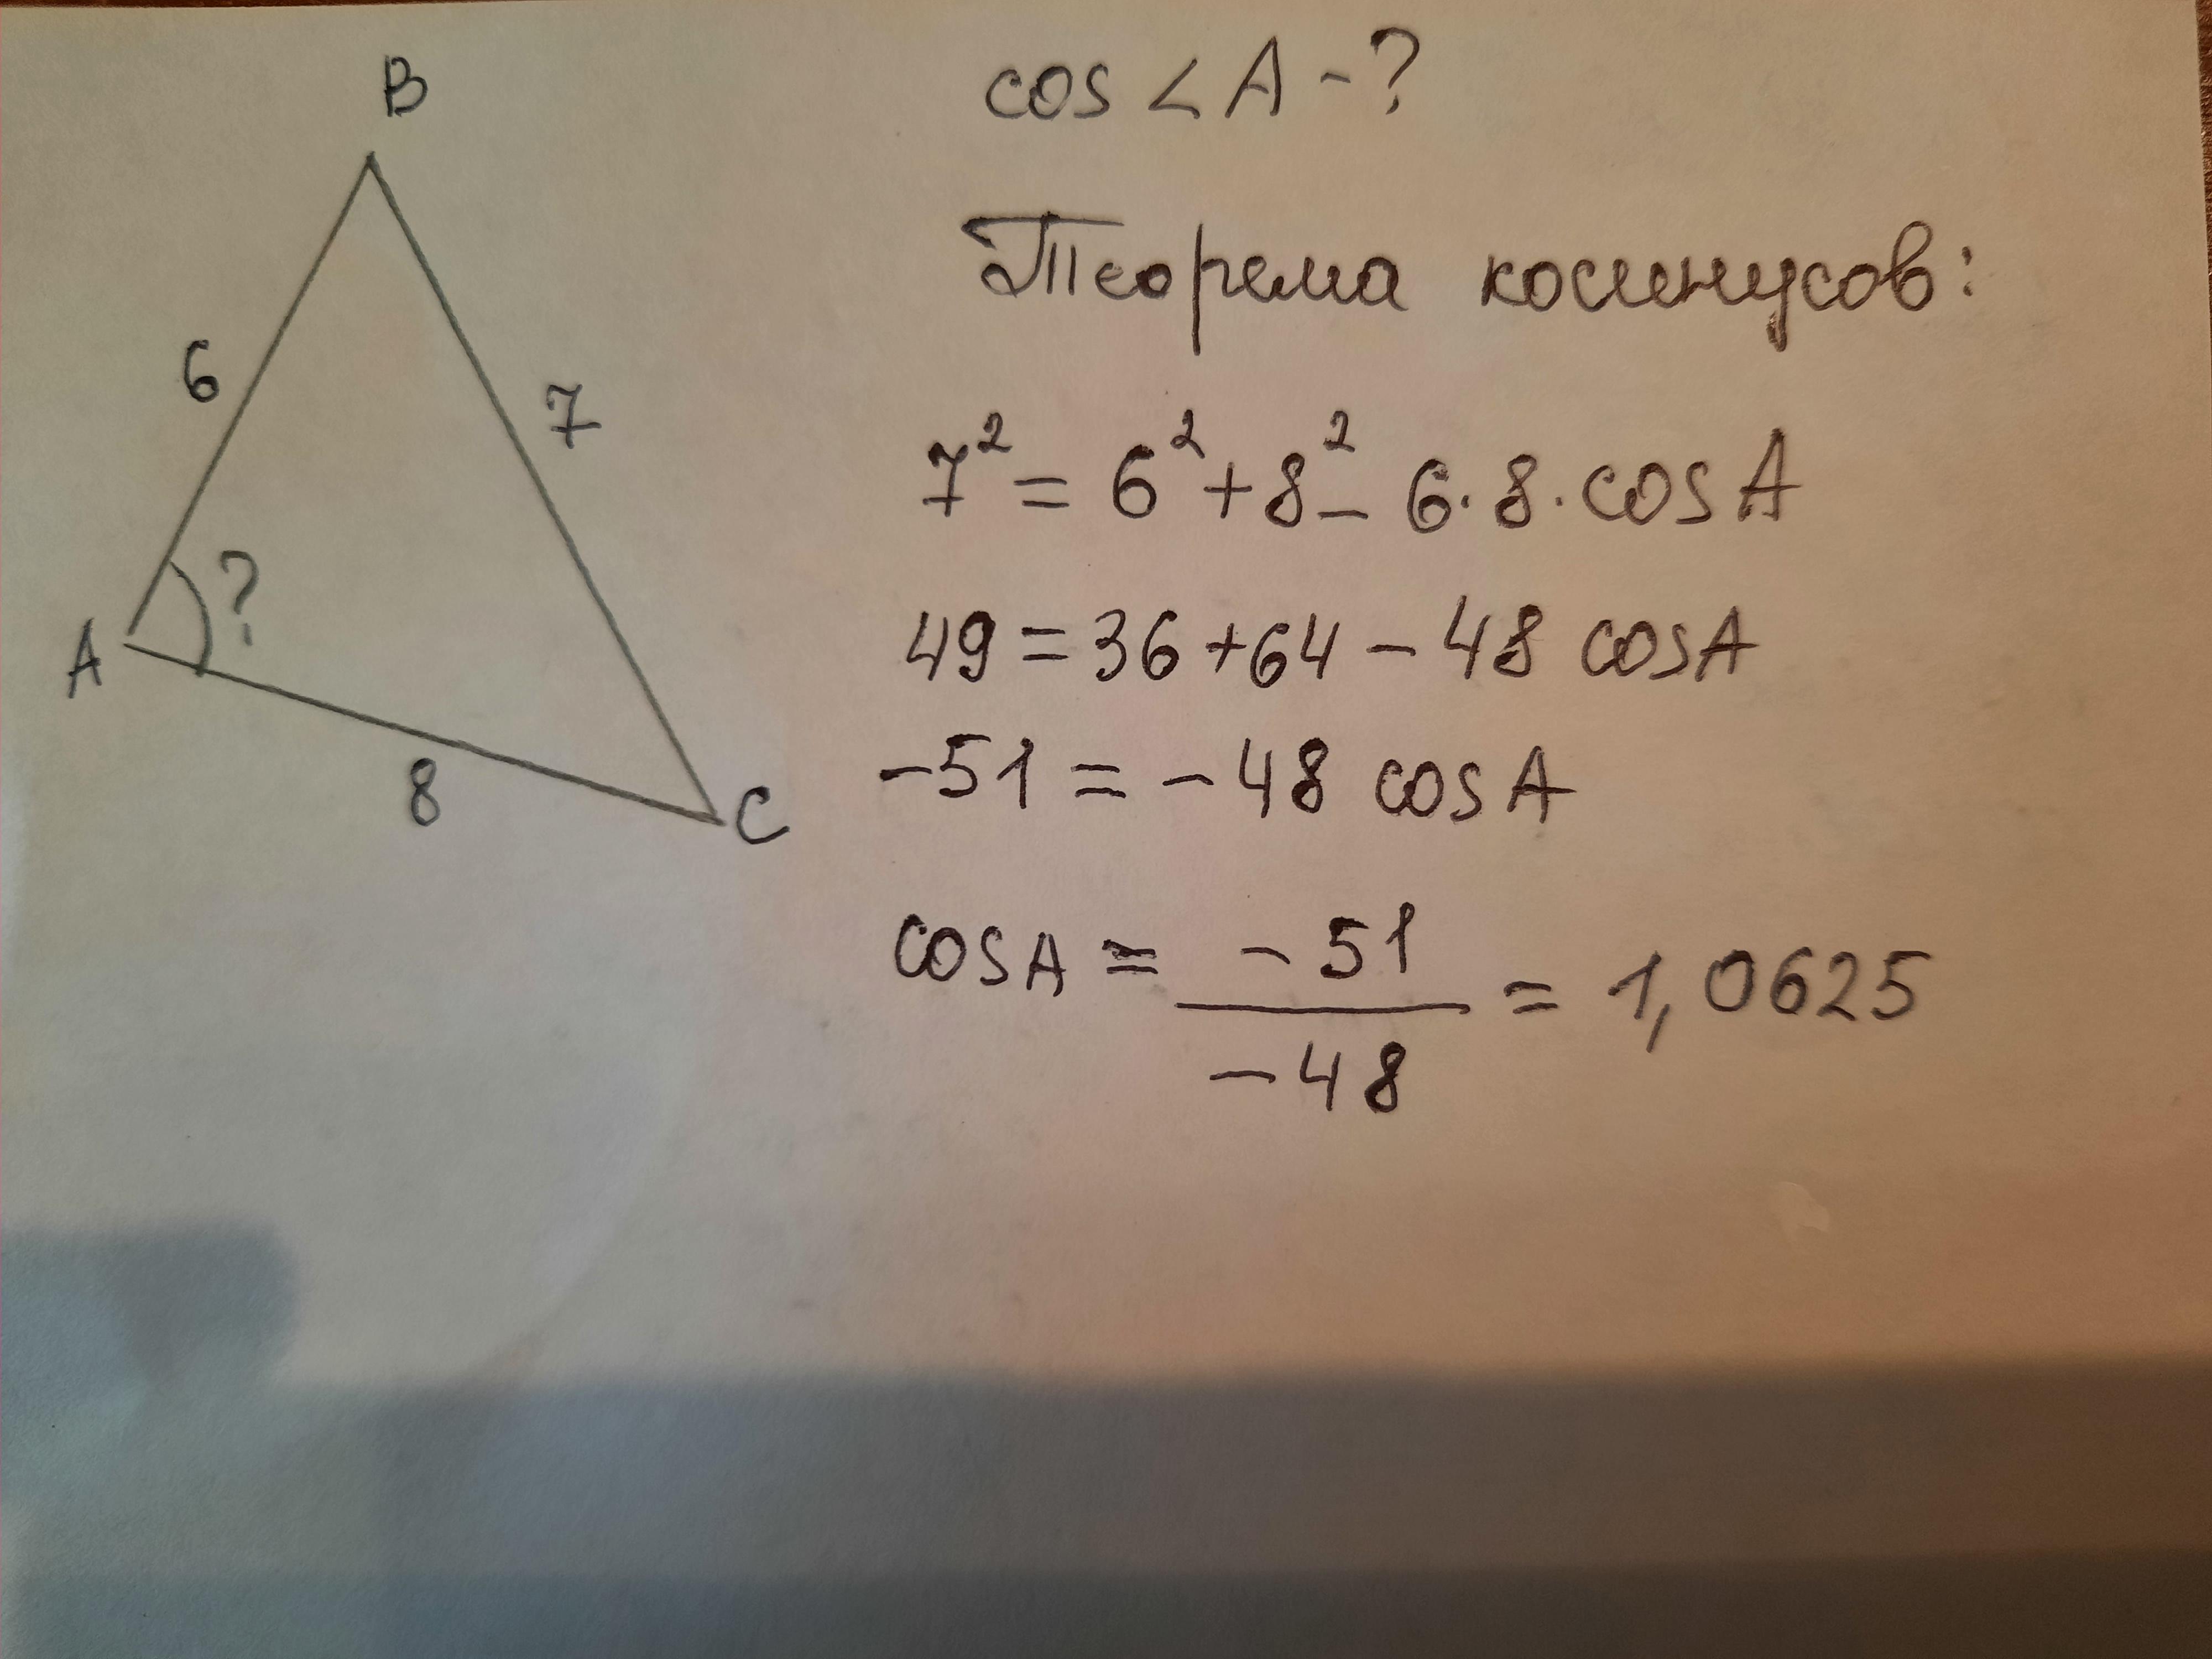 B
6
7
A
?
8
C
cos < A - ?
Теорема косинусов:
7² = 6² + 8² - 6 · 8 · cos A
49 = 36 + 64 - 48 cos A
-51 = -48 cos A
cos A = -51 / -48 = 1,0625